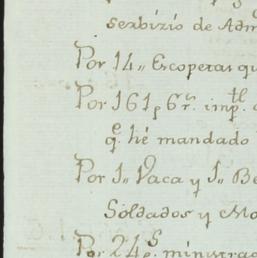 serbizio de Adm
Por 14,, Escopetas qu
Por 161p 6rs. imp.te
q.e hé mandado
Por 1,, Vaca y 1,, Be
Soldados y Mo
Por 24ps. ministrad